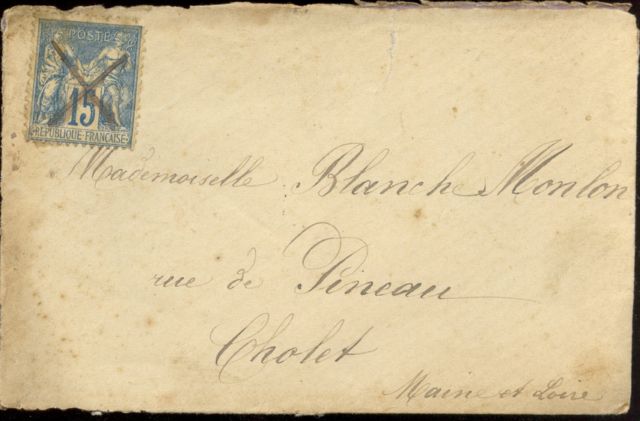 POSTES
15
REPUBLIQUE FRANÇAISE
Mademoiselle Blanche Monlon
rue de Pineau
Cholet
Maine et Loire